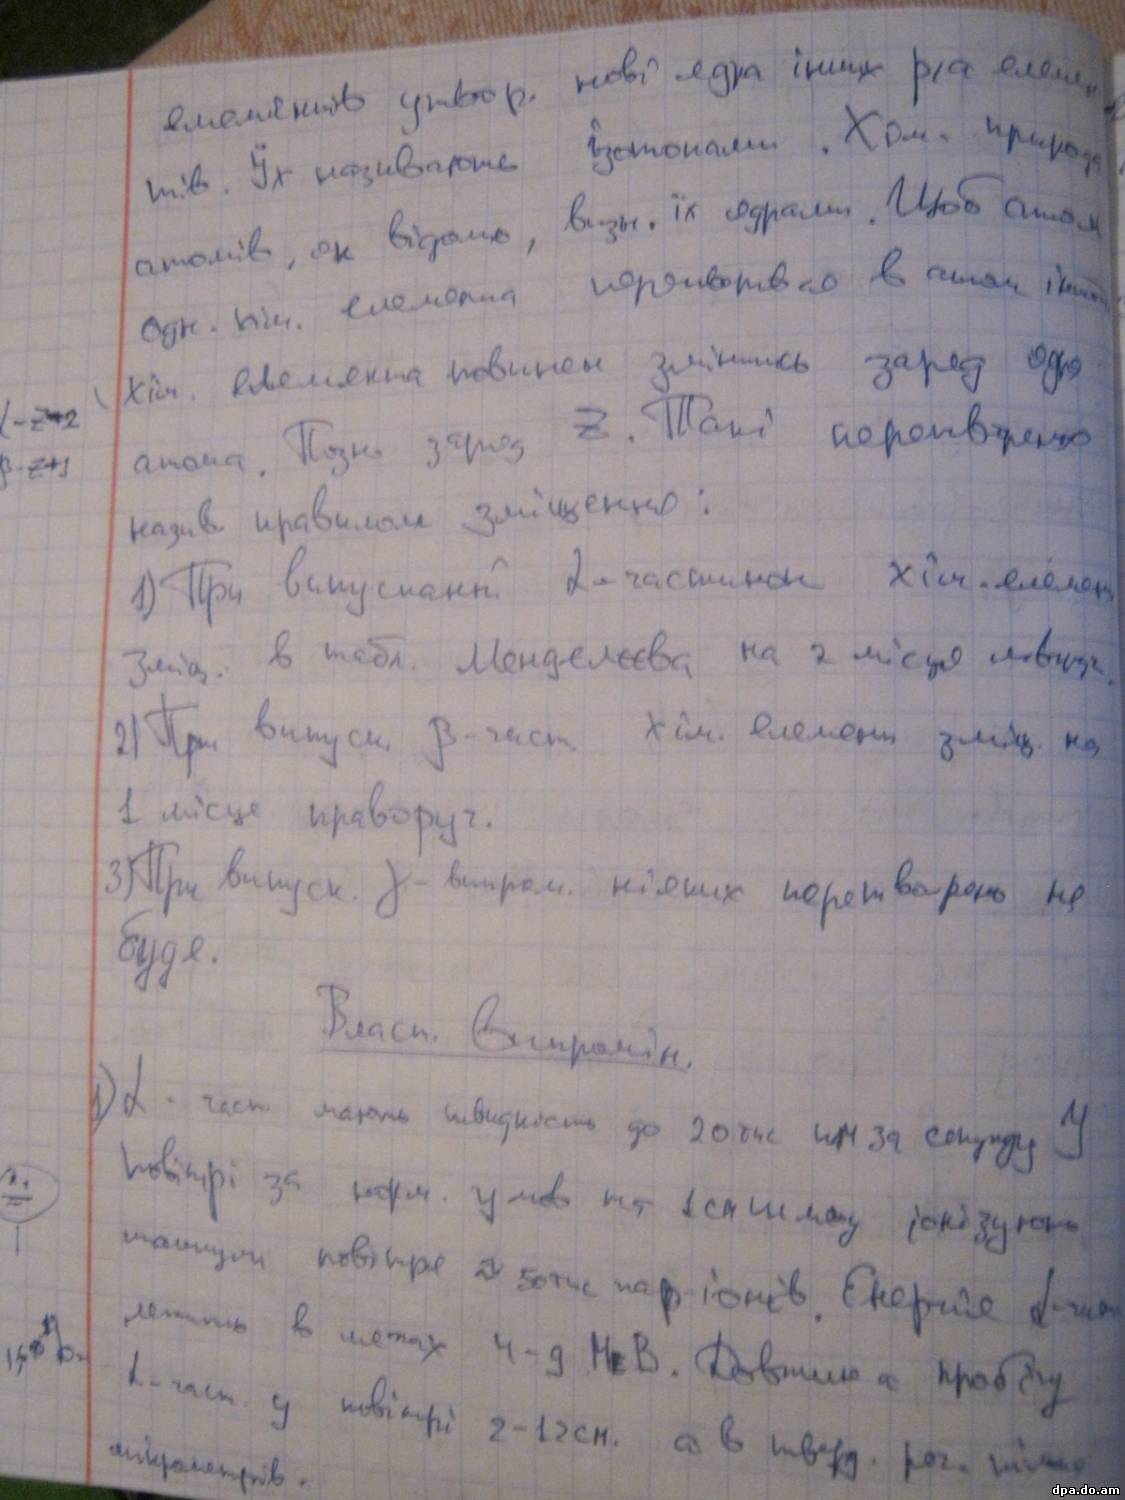 елементів утвор. нові ядра інших р/а елемен
тів. Їх називають ізотопами. Хім. природа
атомів, як відомо, визн. їх ядрами. Щоб атом
одн. хім. елемента перетворився в атом іншого
хім. елемента повинен змінитись заряд ядра
α - Z-2
атома. Позн. заряд Z. Такі перетворення
β - Z+1
назив правилом зміщення:
1) При випусканні α-частинок хім. елемен
зміщ. в табл. Менделєєва на 2 місця ліворуч.
2) При випуск. β-част хім. елемент зміщ. на
1 місце праворуч.
3) При випуск. γ-випром. ніяких перетворень не
буде.
Власт. випромін.
1) α - част мають швидкість до 20 тис км за секунду У
повітрі за норм. умов на 1 см шляху іонізують
повітря ≈ 50 тис пар іонів. Енергія α-част
лежить в межах 4-9 МеВ. Довжина пробігу
α-част. у повітрі 2-12 см. а в тверд. реч.
мікрометрів.
dpa.do.am